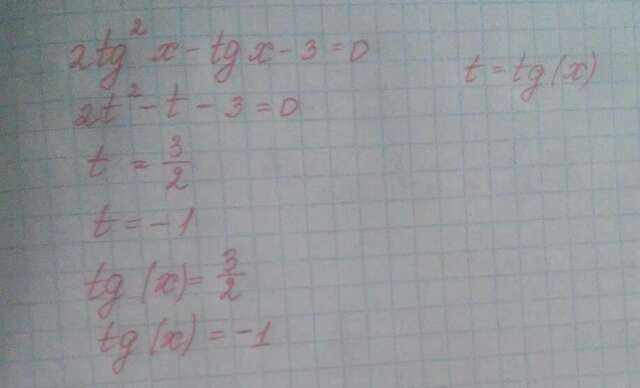 2tg² x - tg x - 3 = 0
t = tg(x)
2t² - t - 3 = 0
t = 3/2
t = -1
tg (x) = 3/2
tg (x) = -1